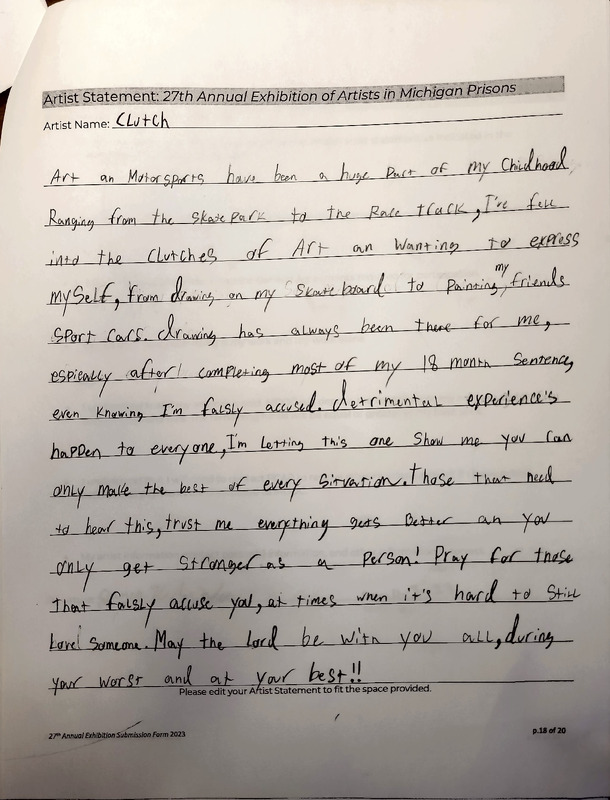 Artist Statement: 27th Annual Exhibition of Artists in Michigan Prisons
Artist Name: Clutch
Art an Motorsports have been a huge Part of my Childhood,
Ranging from the Skate Park to the Race track, I've fell
into the Clutches of Art an Wanting to express
mySelf, from drawing on my Skateboard to Painting my friends
Sport Cars. drawing has always been there for me,
espically after completing most of my 18 month Sentence,
even Knowing I'm falsly accused. detrimental experience's
happen to everyone, I'm Letting this one Show me you Can
only make the best of every Situation. Those that need
to hear this, trust me everything gets Better an you
only get Stronger as a Person! Pray for those
that falsly accuse you, at times when it's hard to Still
Love Someone. May the Lord be With you all, during
your worst and at your best!!
Please edit your Artist Statement to fit the space provided.
27th Annual Exhibition Submission Form 2023
p.18 of 20